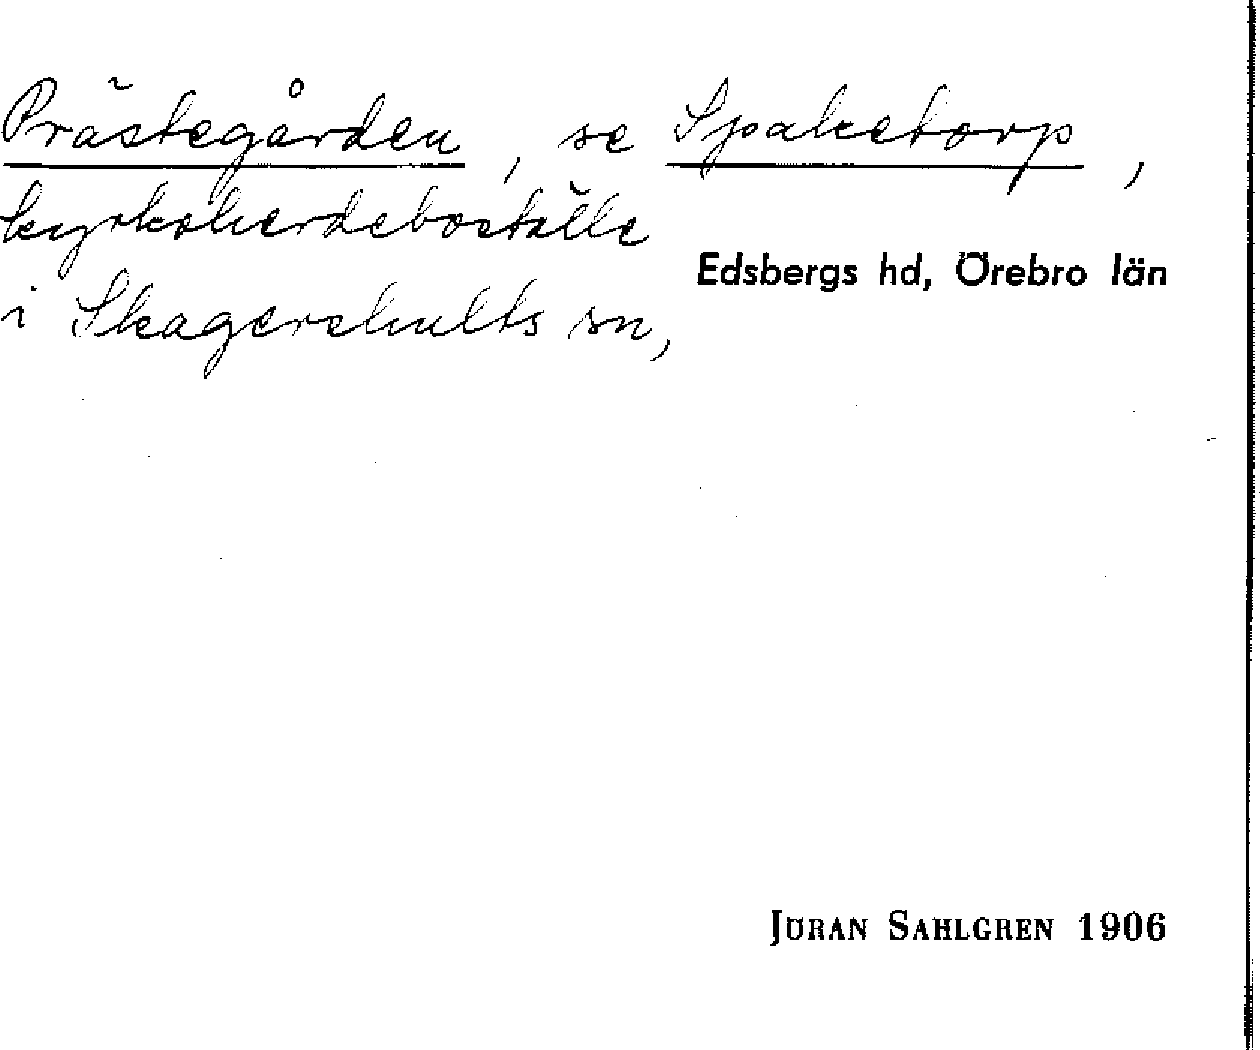 Prästegården, se Spaketorp,
kyrkoherdeboställe
i Skagershults sn,
Edsbergs hd, Örebro län
JÖRAN SAHLGREN 1906